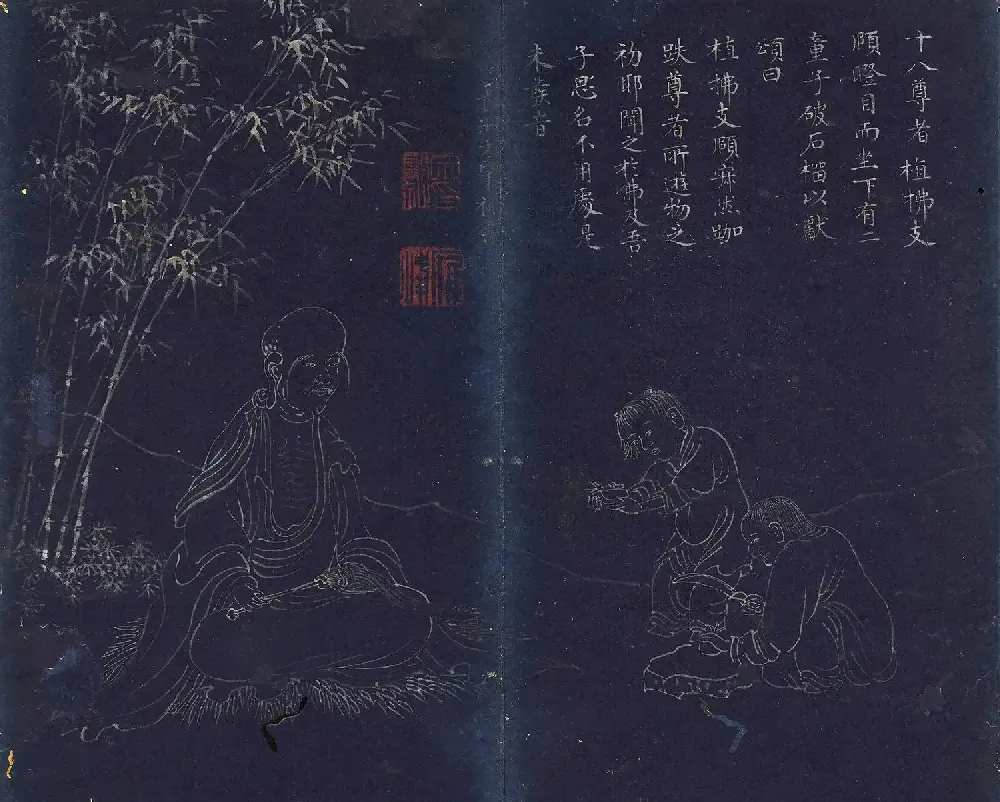 十八尊者植拂支
頤瞪目而坐下有二
童子破石榴以獻
頌曰
植拂支頤寂然跏
趺尊者所遊物之
初耶聞之於佛及吾
子思名不用處是
未發旹